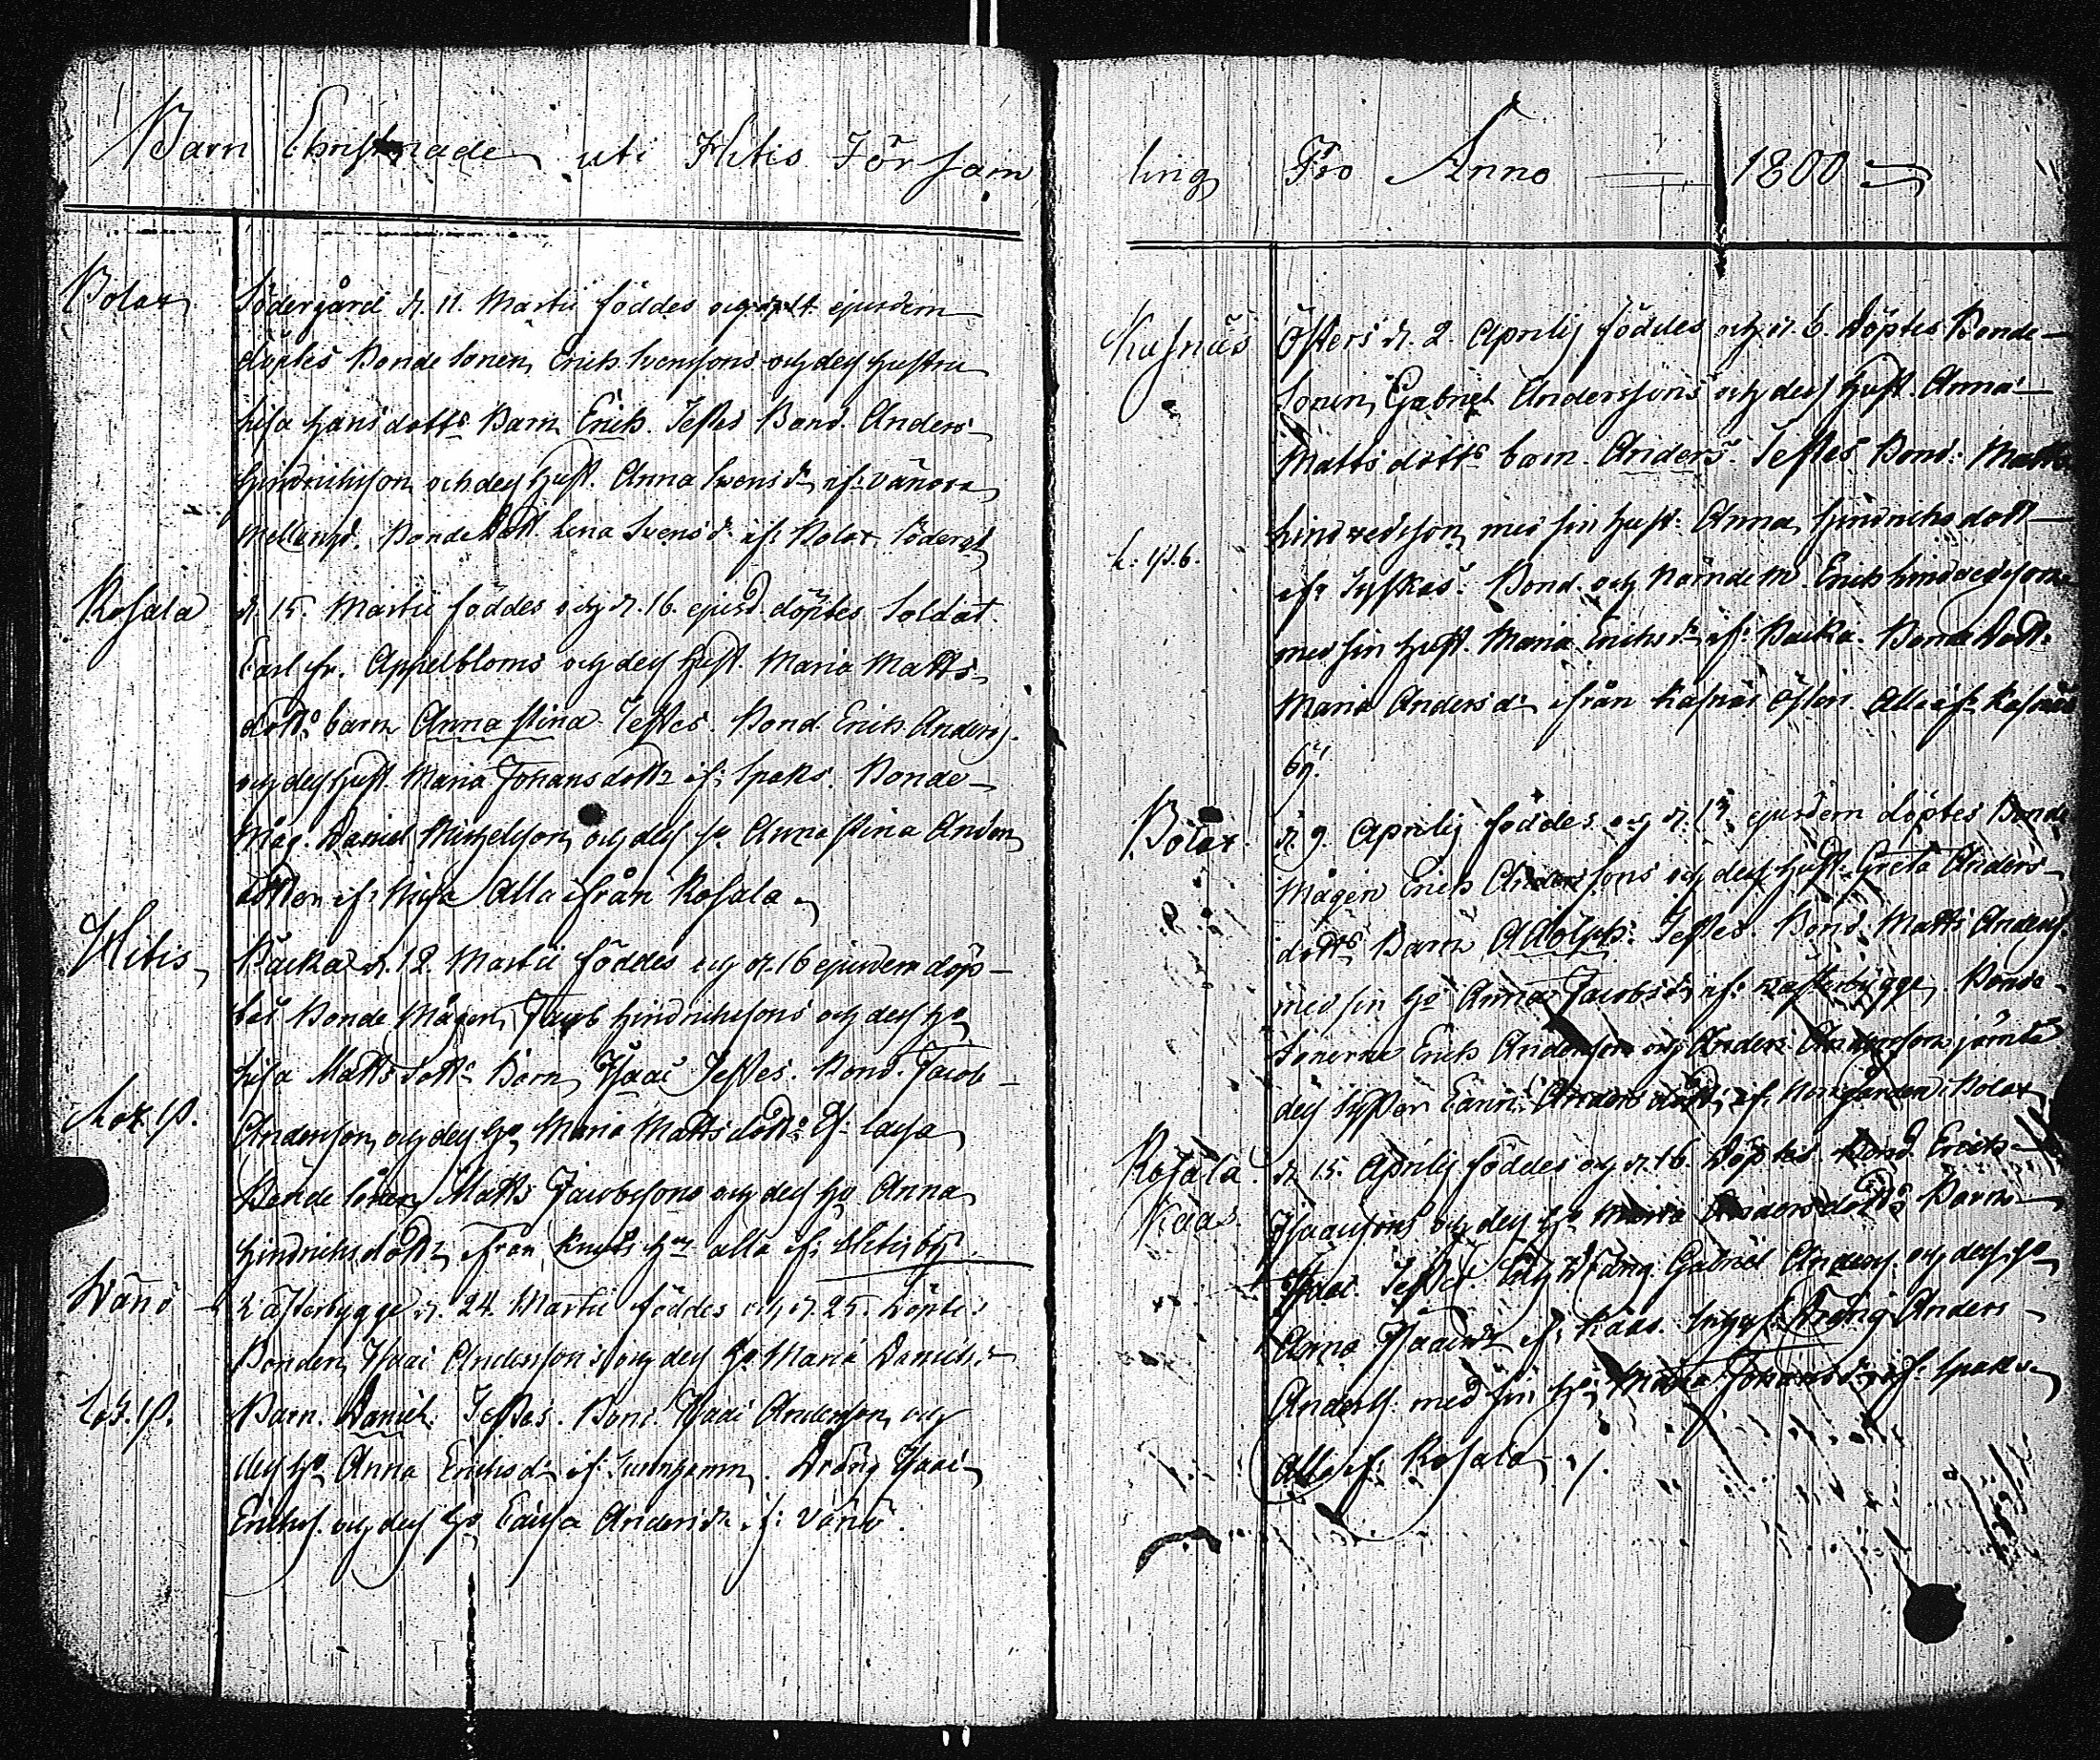 Barn Christnade uti Hitis Församling Pro Anno 1800
Bolax
Södergård d. 11. Martii föddes och ejusdem
döptes Bonde Sonen Erich Svenssons och dess Hustru
Lisa Hansdotts Barn Erich. Testes Bond. Anders
Hindrichsson och dess Hust. Anna Svensdr ifr Vänoxa
Mellangd. Bonde Dott. Lena Svensdr ifr Bolax Södergd
Rosala
d. 15. Martii föddes och d. 16. ejusd. döptes Soldat.
Carl Fr. Appelbloms och dess Hust. Maria Matts
dotts barn Anna Stina Testes. Bond. Erich Anderss.
och dess Hust. Maria Johansdottr ifr Spaks. Bonde
Måg. Daniel Michelsson och dess H. Anna Stina Anders
dotter ifr Nisa Alla ifrån Rosala
Hitis
Backa d. 12. Martii föddes och d. 16 ejusdem döp-
tes Bonde Mågen Jacob Hindrichssons och dess Ho
Lisa Matts dotts Barn Isaac Testes. Bond. Jacob
Andersson och dess Ho Maria Matts dottr
Bonde Sonen Matts Jacobssons och dess Ho Anna
Hindrichsdottr ifrån Knuts alla ifr Hitis by
Vänö
Västerbygge d. 24. Martii föddes och d. 25. döpte
Bonden Isaac Anderssons och dess Ho Maria Daniels dr
Barn. Daniel. Testes. Bond. Isaac Andersson och
dess Ho Anna Erichsdr ifr Dräng Isaac
Erichss. och dess Ho Caisa Andersdr ifr Vänö.
Kasnäs
Östers d. 2. Aprilis föddes och d. 6. döptes Bonde
Sonen Gabriel Anderssons och dess Hust. Anna
Matts dotts barn. Anders. Testes Bond. Matts
Hindredsson med sin Hust. Anna Hindrichs dott
ifr Bond. och Nämdem. Erich Hindredsson
med sin Hust. Maria Erichsdr ifr Backa. Bonde Dott.
Maria Andersdr ifrån Kasnäs Östers. Alla ifr Kasnäs
by.
Bolax
d. 9. Aprilis föddes och d. 13 ejusdem döptes Bonde
Mågen Erich Anderssons och dess Hust. Greta Anders
dotts Barn Adolph. Testes. Bond. Matts Anderss.
med sin Ho Anna Jacobsdr ifr Västerbygge. Bonde
Sonerne Erich Andersson och Anders Andersson jämte
dess Syster Anders dottr ifr Norrgården Bolax
Rosala
Kaas
d. 15. Aprilis föddes och d. 16. Döptes Bond. Erich
Isaacssons och dess Ho Maria Andersdotts Barn
Isaac. Testes Dräng Gabriel Anderss. och dess Ho
Anna Isaacsdr ifr Kaas. Dräng Anders
Anderss. med sin Ho Maria Johansdr ifr Spaks
Alla ifr Rosala